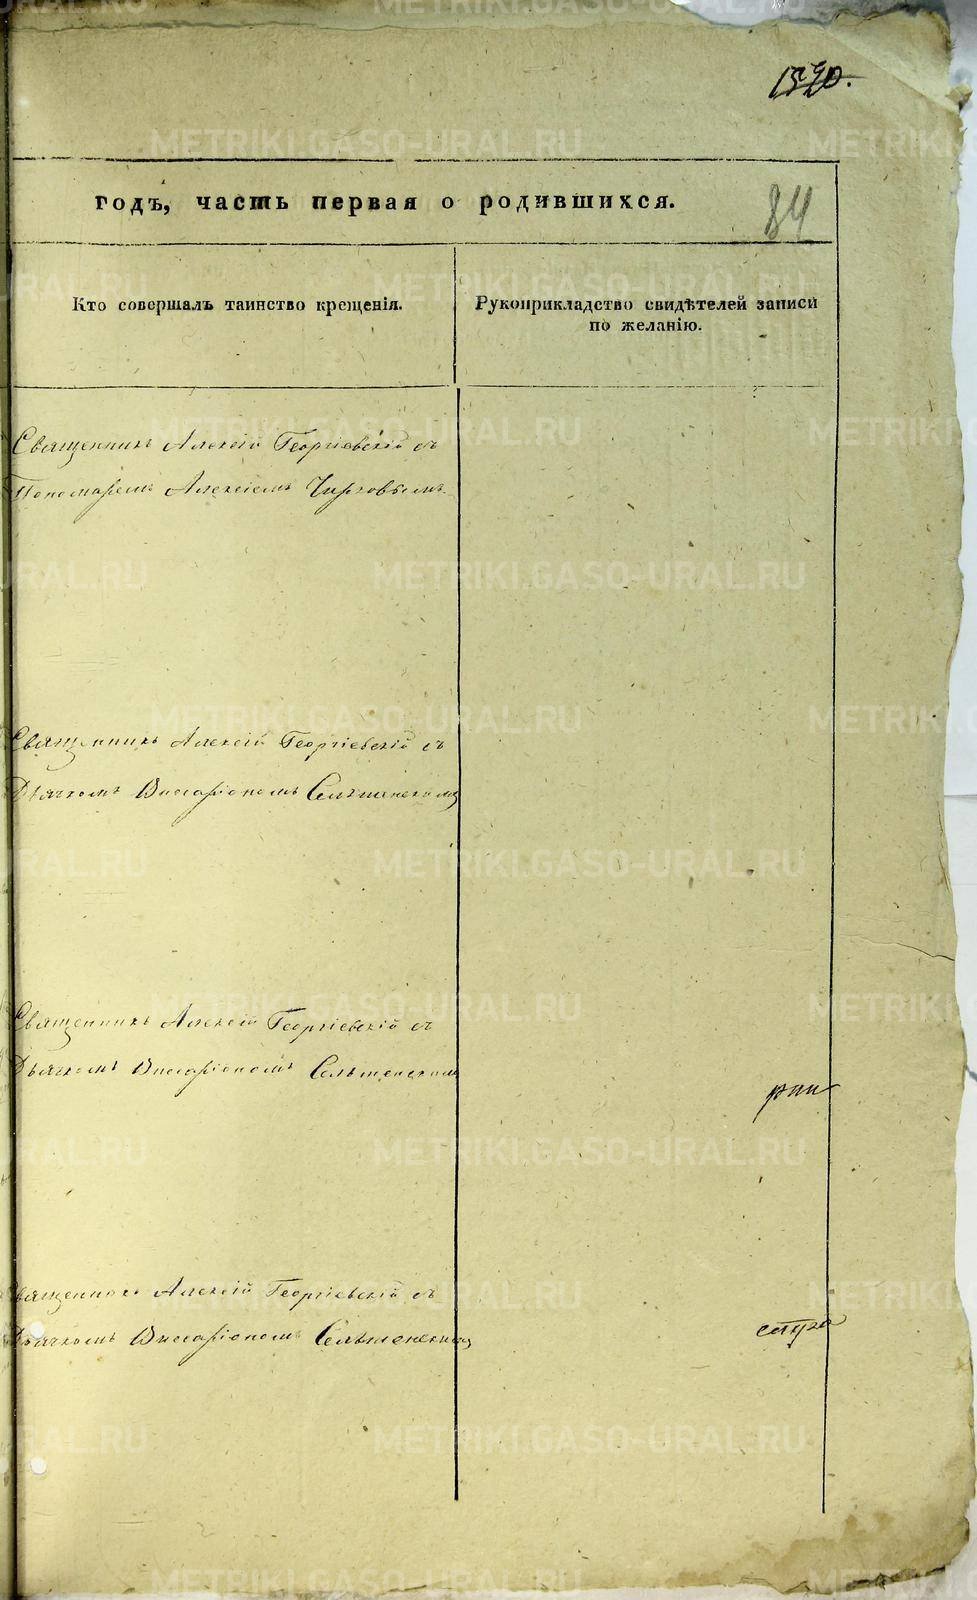 1590.
годъ, часть первая о родившихся.
84
Кто совершалъ таинство крещенія.
Рукоприкладство свидѣтелей записи
по желанію.
Священникъ Алексій Георгіевскій съ
Пономаремъ Алексіемъ
Священникъ Алексій Георгіевскій съ
Дьячкомъ Висаріономъ Селѣменскимъ
Священникъ Алексій Георгіевскій съ
Дьячкомъ Висаріономъ Селѣменскимъ
Священникъ Алексій Георгіевскій съ
Дьячкомъ Висаріономъ Селѣменскимъ
METRIKI.GASO-URAL.RU